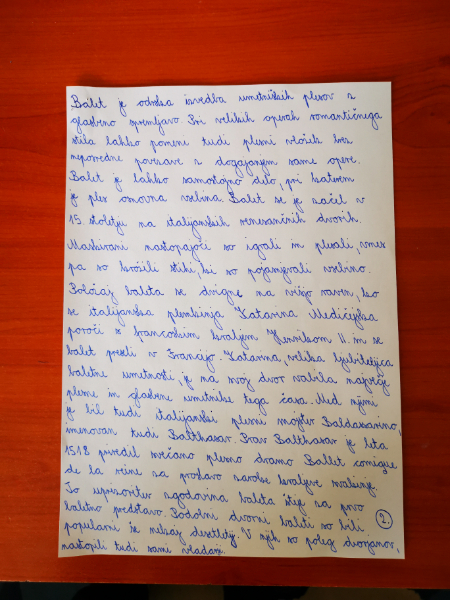 Balet je odrska izvedba umetniških plesov z
glasbeno spremljavo. Pri velikih operah romantičnega
stila lahko pomene tudi plesni vložek brez
neposredne povezave z dogajanjem same opere.
Balet je lahko samostojno delo, pri katerem
je ples osnovna vsebina. Balet se je začel v
15 stoletju na italijanskih renesančnih dvorih.
Maskirani nastopajoče so igrali in plesali, vmes
pa so krožili stihi, ki so pojasnjevali vsebino.
Položaj baleta se dvigne na višjo raven, ko
se italijanska plemkinja Katarina Medičejska
poroči s francoskim kraljem Henrikom II. in se
balet preseli v Francijo. Katarina, velika ljubiteljica
baletne umetnosti, je na svoj dvor vabila največje
plesne in glasbene umetnike tega časa. Med njimi
je bil tudi italijanski plesni mojster Baldassarino,
imenovan tudi Balthasar. Prav Balthasar je leta
1518 priredil srečano plesno dramo Ballet comique
de la reine za proslavo zaroke kraljeve
To uprizoritev zgodovina baleta šteje za prvo
baletno predstavo. Podobni dvorni baleti so bili
popularni še nekaj desetletij. V njih so poleg dvorjanov,
nastopili tudi sami vladarji.
2.